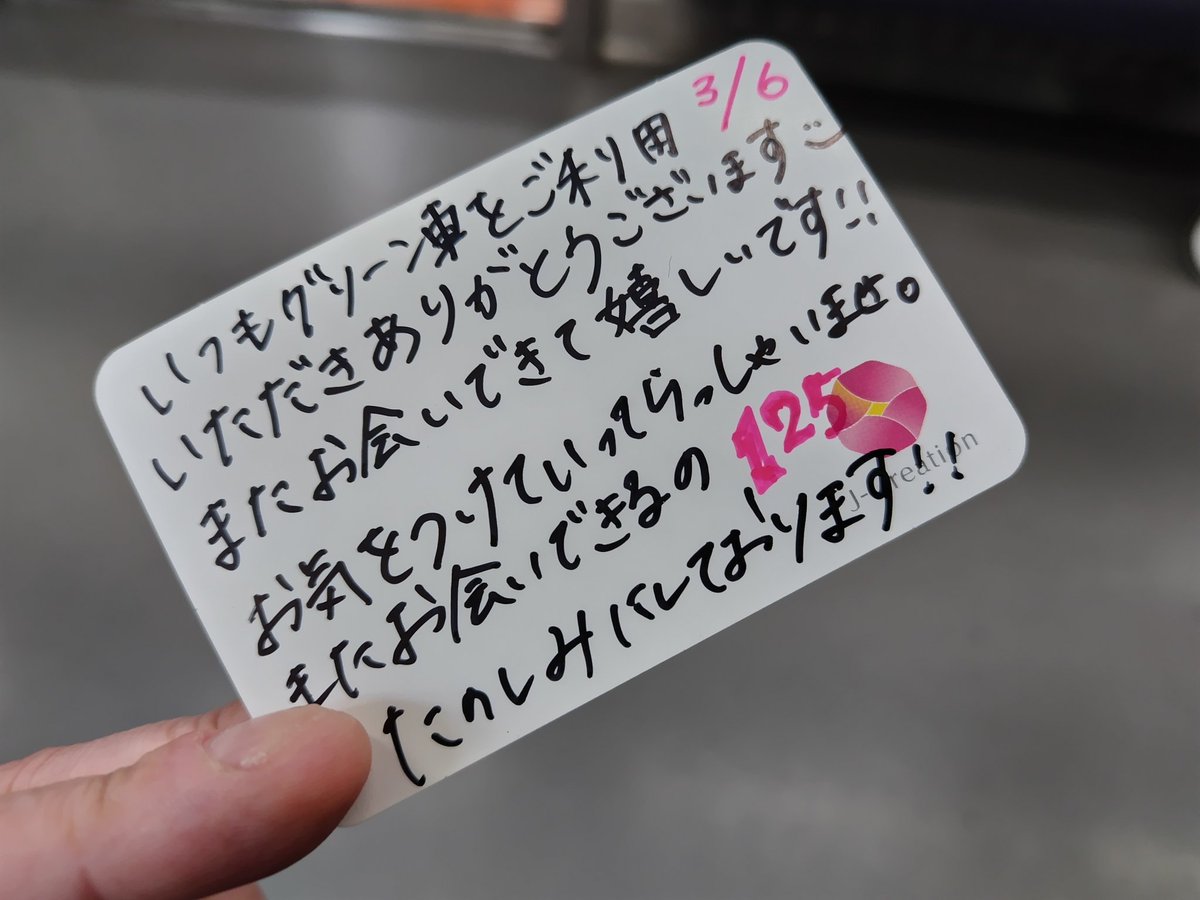 3/6
いつもグリーン車をご利用
いただきありがとうございます
またお会いできて嬉しいです!!
お気をつけていってらっしゃいませ。
またお会いできるの
125
J-Creation
たのしみにしております!!